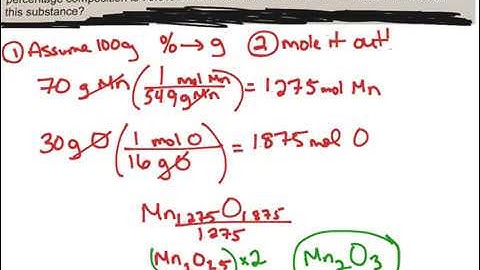 this substance?
① Assume 100g % → g ② mole it out!
70 g Mn (1 mol Mn / 54.9 g Mn) = 1.275 mol Mn
30 g O (1 mol O / 16 g O) = 1.875 mol O
Mn1.275O1.875
1.275
(Mn1O1.5) × 2 Mn2O3